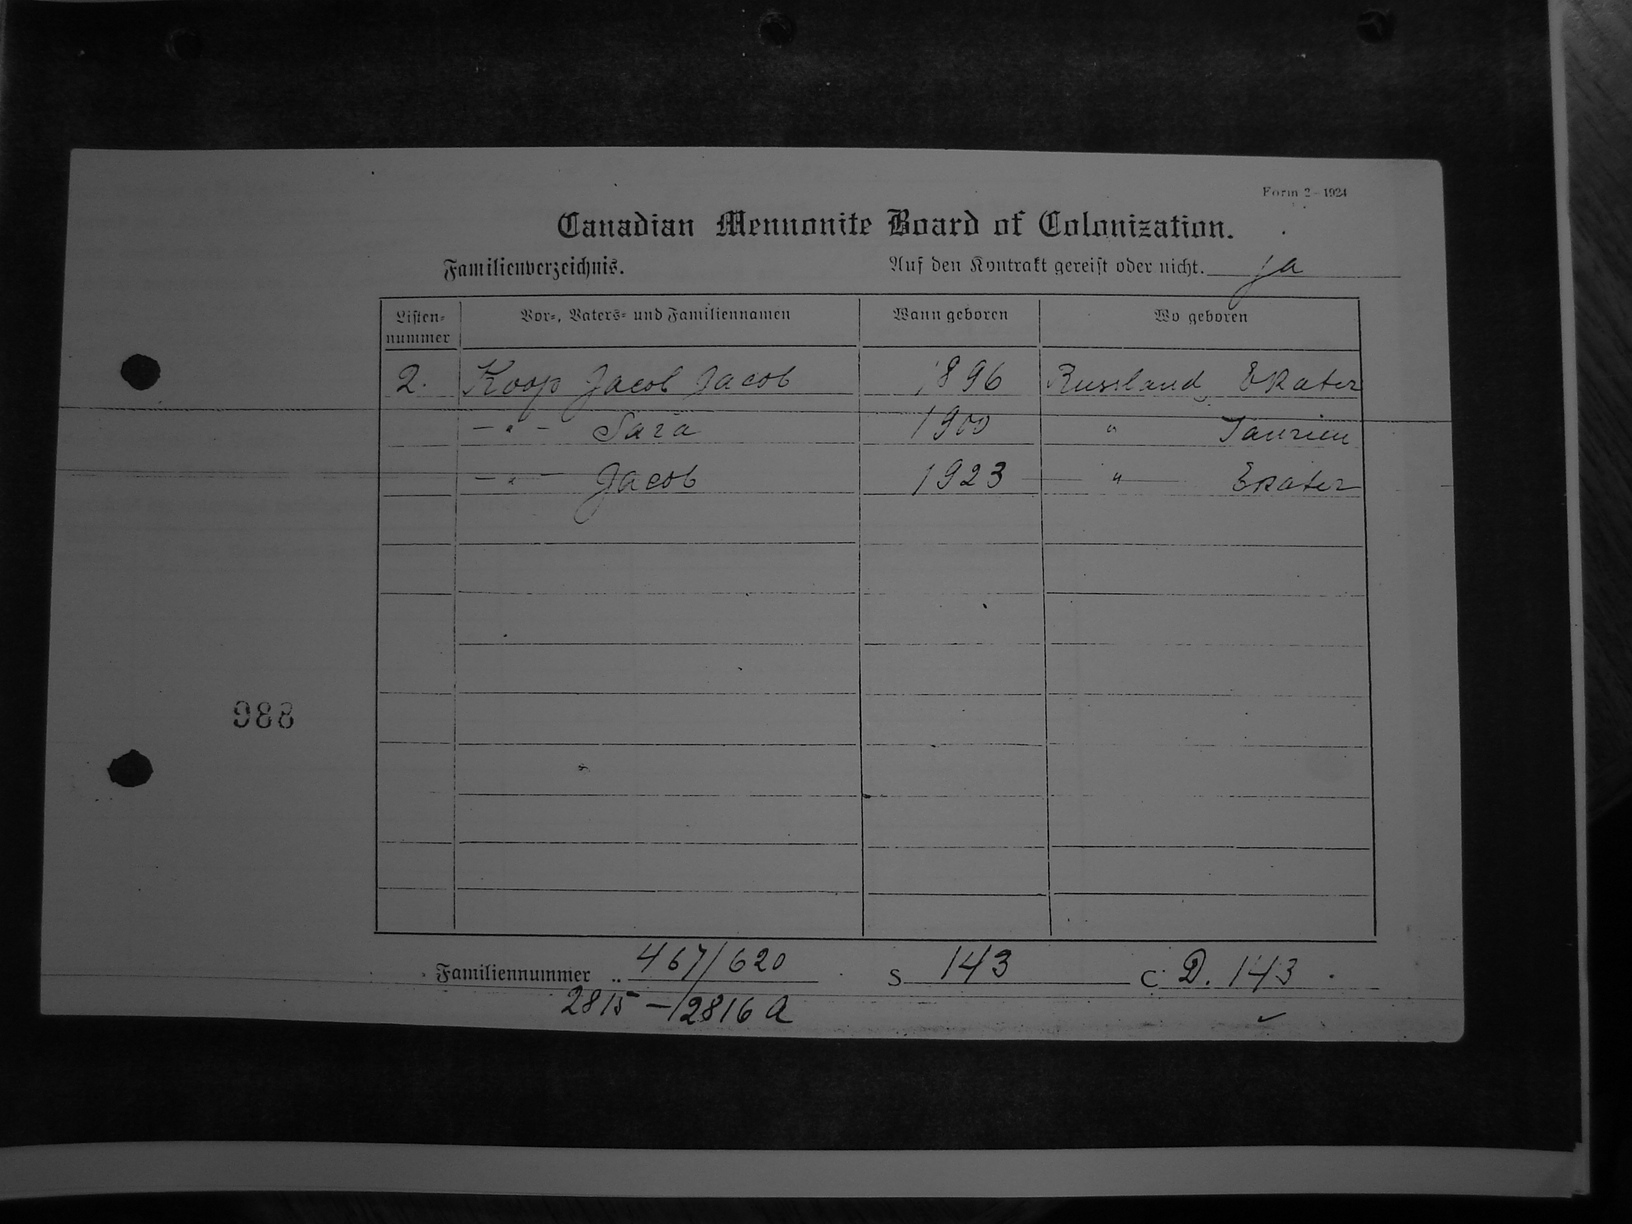 Form 2-1924
Canadian Mennonite Board of Colonization.
Familienverzeichnis. Auf den Kontrakt gereist oder nicht. ja
Listen-nummer Vor-, Vaters- und Familiennamen Wann geboren Wo geboren
2. Koop Jacob Jacob 1896 Russland Ekater
-"- Sara 1900 " Taurien
-"- Jacob 1923 " Ekater
988
Familiennummer 467/620 S 143 C D. 143
2815-12816 a